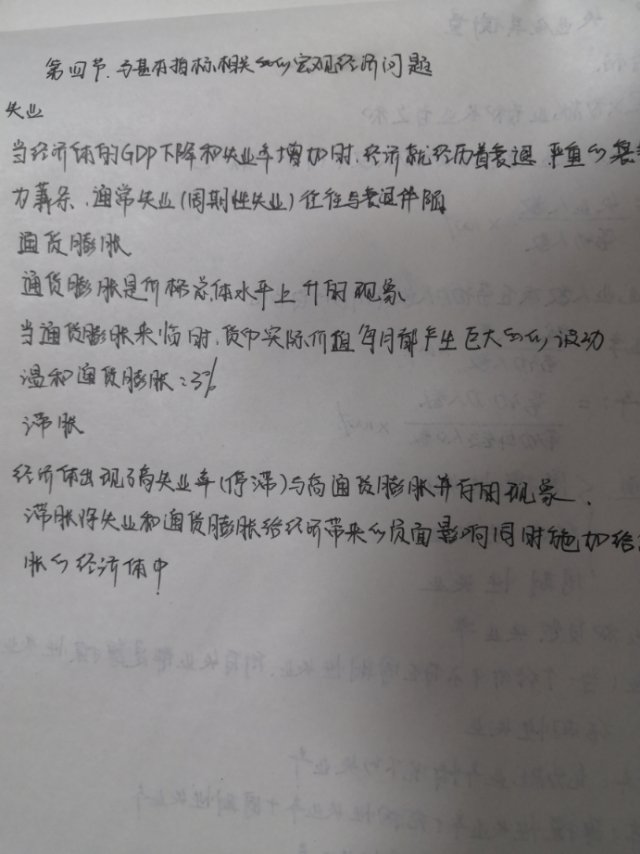 第四节.与基本指标相关的宏观经济问题
失业
当经济体的GDP下降和失业率增加时.经济就经历着衰退.严重的
为萧条.通常失业(周期性失业)往往与衰退伴随
通货膨胀
通货膨胀是价格总体水平上升的现象
当通货膨胀来临时.货币实际价值每月都产生巨大的波动
温和通货膨胀:3%
滞胀
经济体出现了高失业率(停滞)与高通货膨胀并存的现象.
滞胀将失业和通货膨胀给经济带来的负面影响同时施加给
胀的经济体中